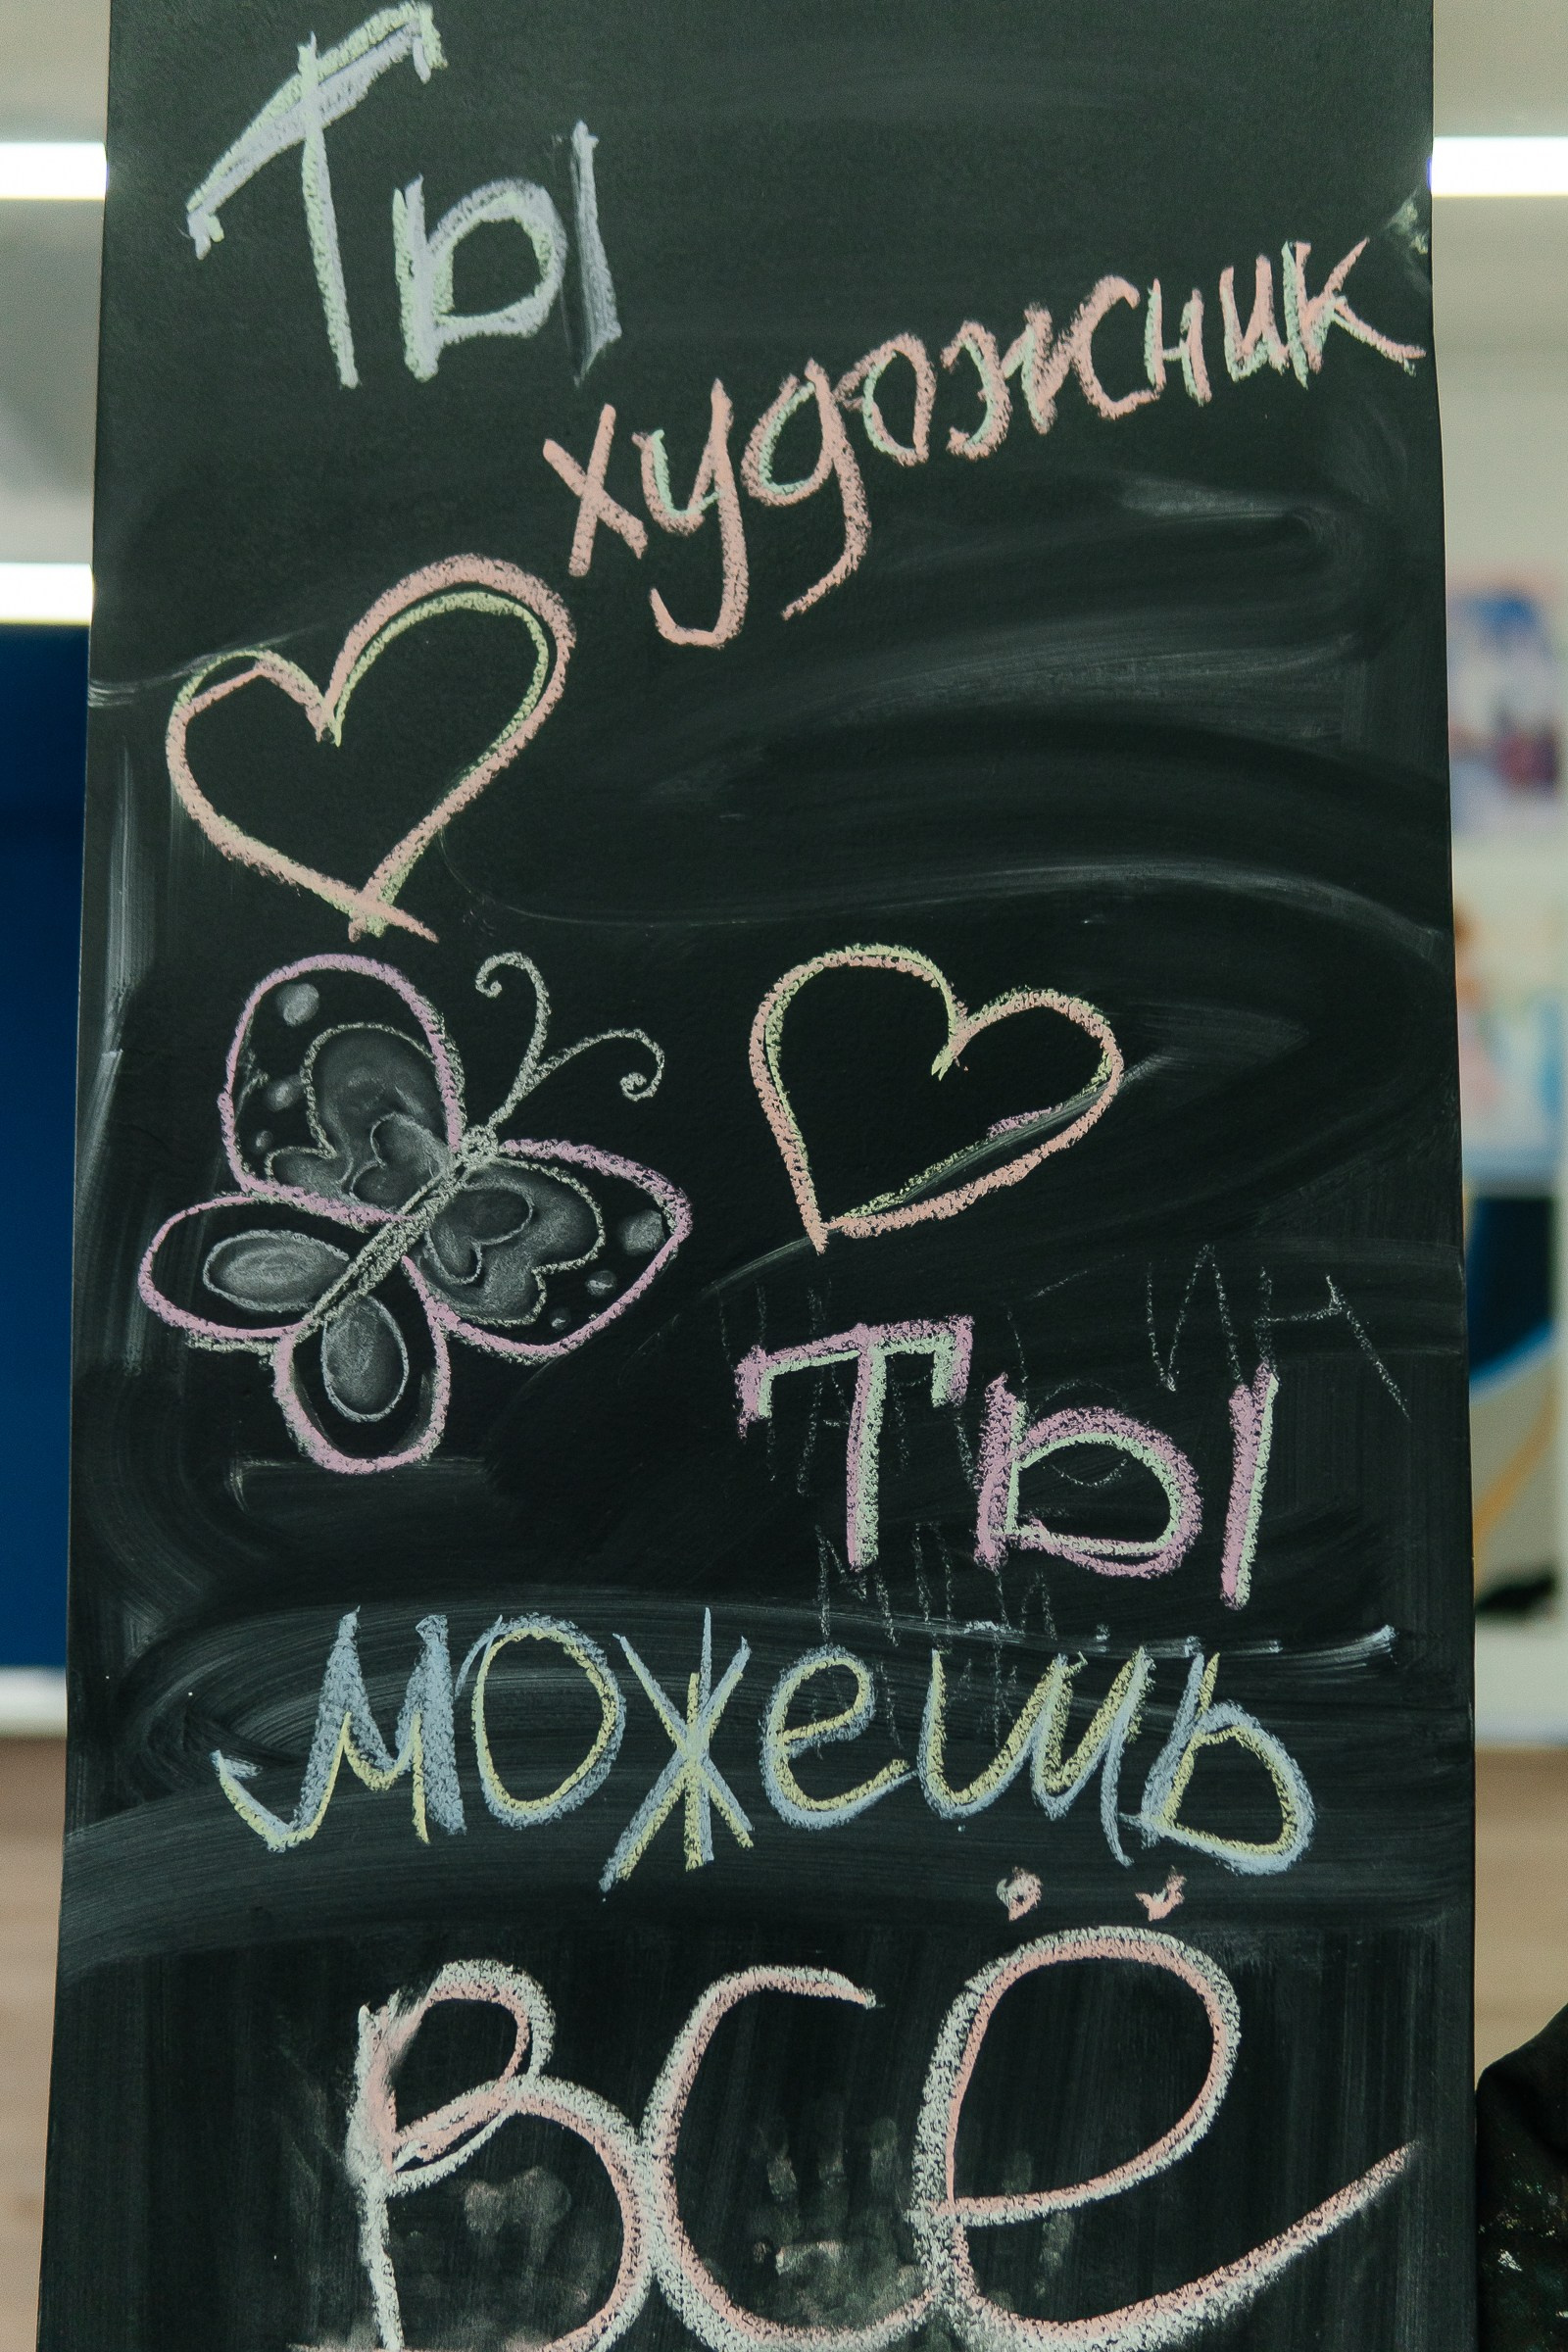 Ты
художник
Ты
можешь
всё